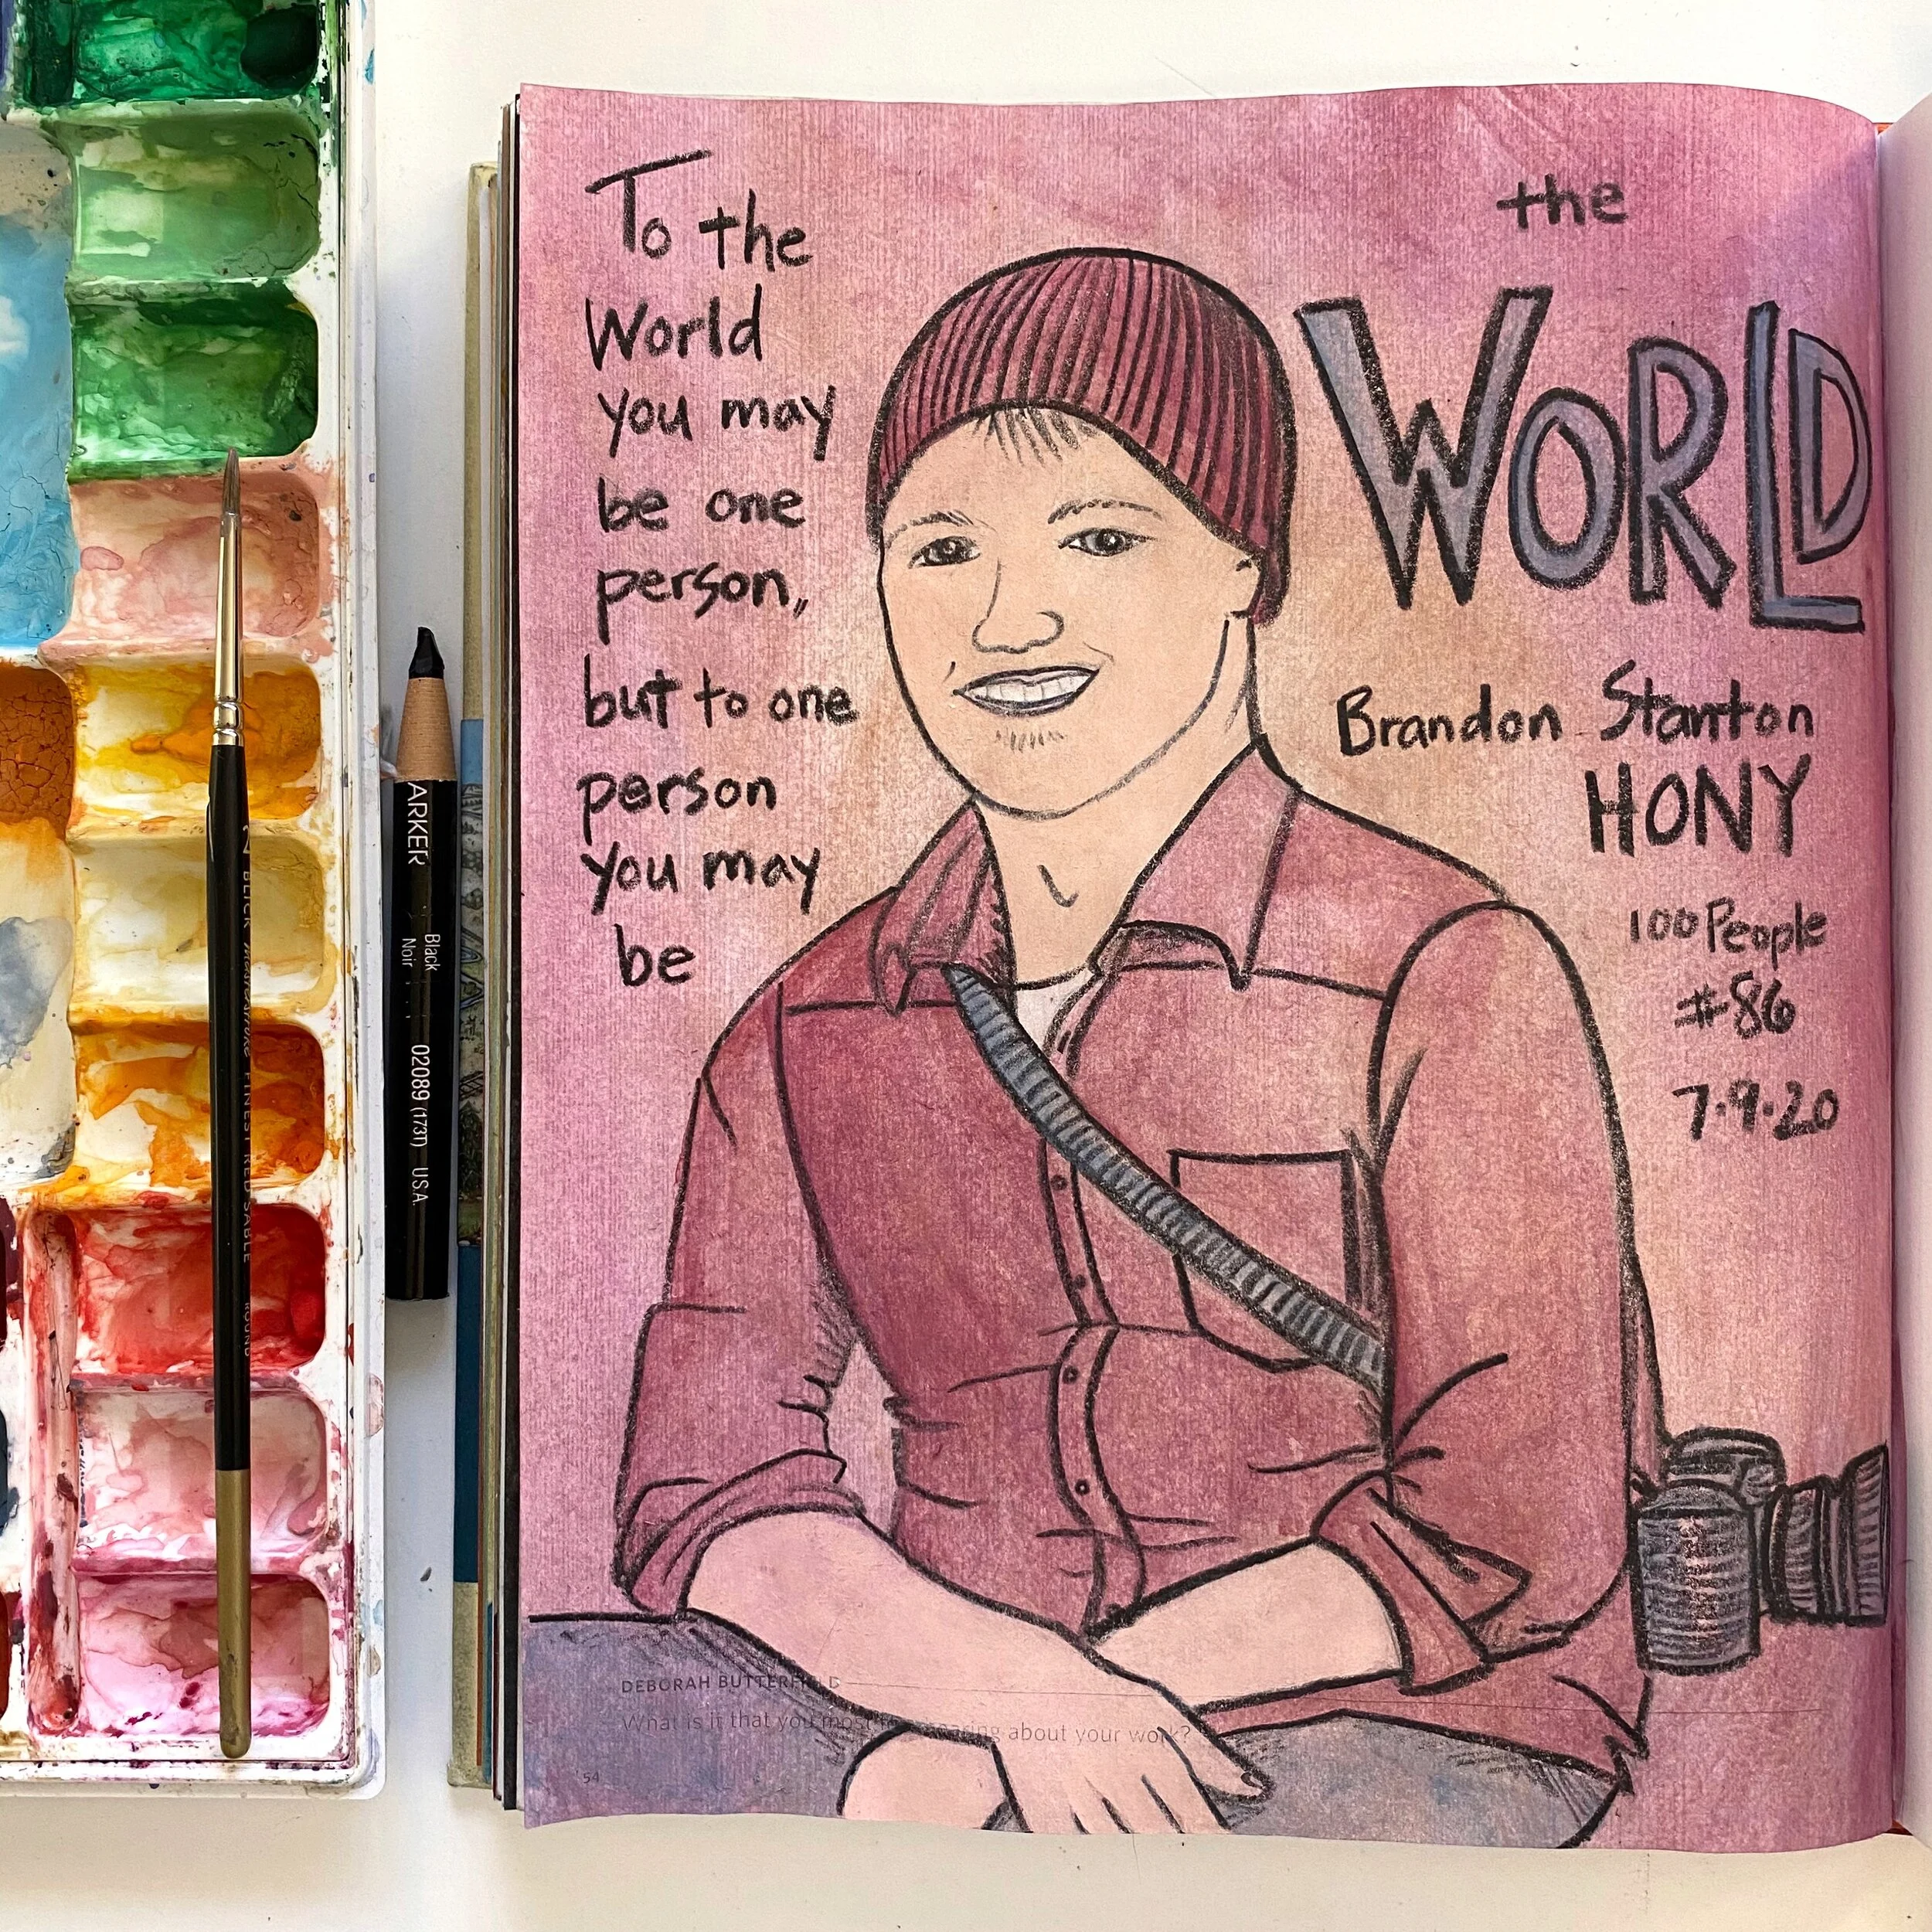 To the
World
you may
be one
person,
but to one
person
you may
be
the
WORLD
Brandon Stanton
HONY
100 People
#86
7.9.20
DEBORAH BUTTERFIELD
What is it that you most about your work?
54
ARKER
Black
Noir
02089 (173T) U.S.A.
BLICK FINEST RED SABLE ROUND